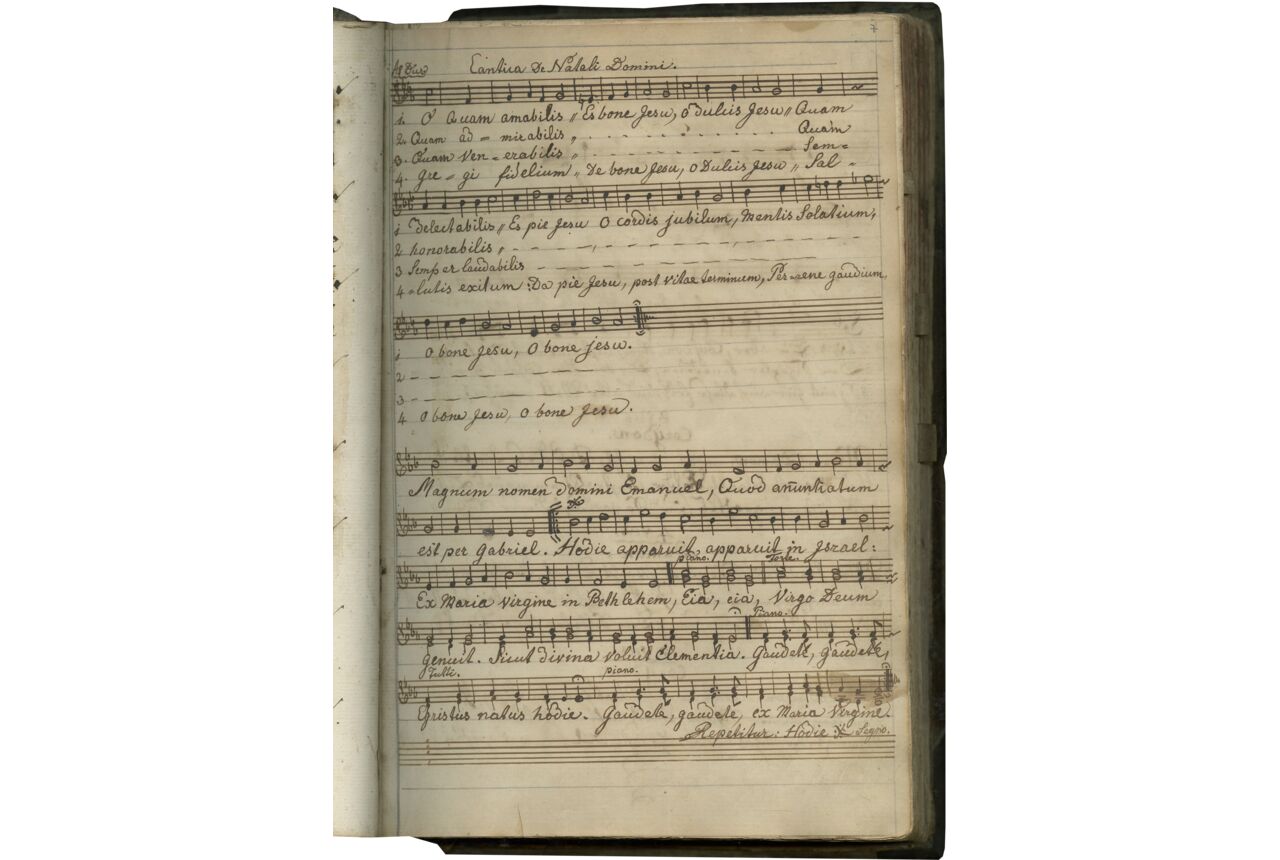 As Dur Cantica De Natali Domini. 7
1. O Quam amabilis // Es bone Jesu, O dulcis Jesu // Quam
2. Quam ad = mirabilis // Quam
3. Quam Ven = erabilis // Sem =
4. gre = gi fidelium // De bone Jesu, o Dulcis Jesu // Sal -
1 delectabilis // Es pie Jesu O cordis jubilum, Mentis Solatium,
2 honorabilis //
3 Semper laudabilis
4 = lutis exitum : Da pie Jesu, post vitae terminum, Per = ene gaudium,
1 O bone Jesu, O bone jesu.
2
3
4 O bone Jesu, O bone Jesu.
Magnum nomen domini Emanuel, Quod anuntiatum
est per Gabriel. Hodie apparuit, apparuit in Jsrael:
piano. Forte.
Ex Maria virgine in Bethlehem, Eia, eia, Virgo Deum
Piano.
genuit. Sicut divina voluit Clementia. Gaudete, gaudete,
Tutti. piano.
Christus natus hodie. Gaudete, gaudete, ex Maria Virgine.
Repetitur: Hodie Segno.